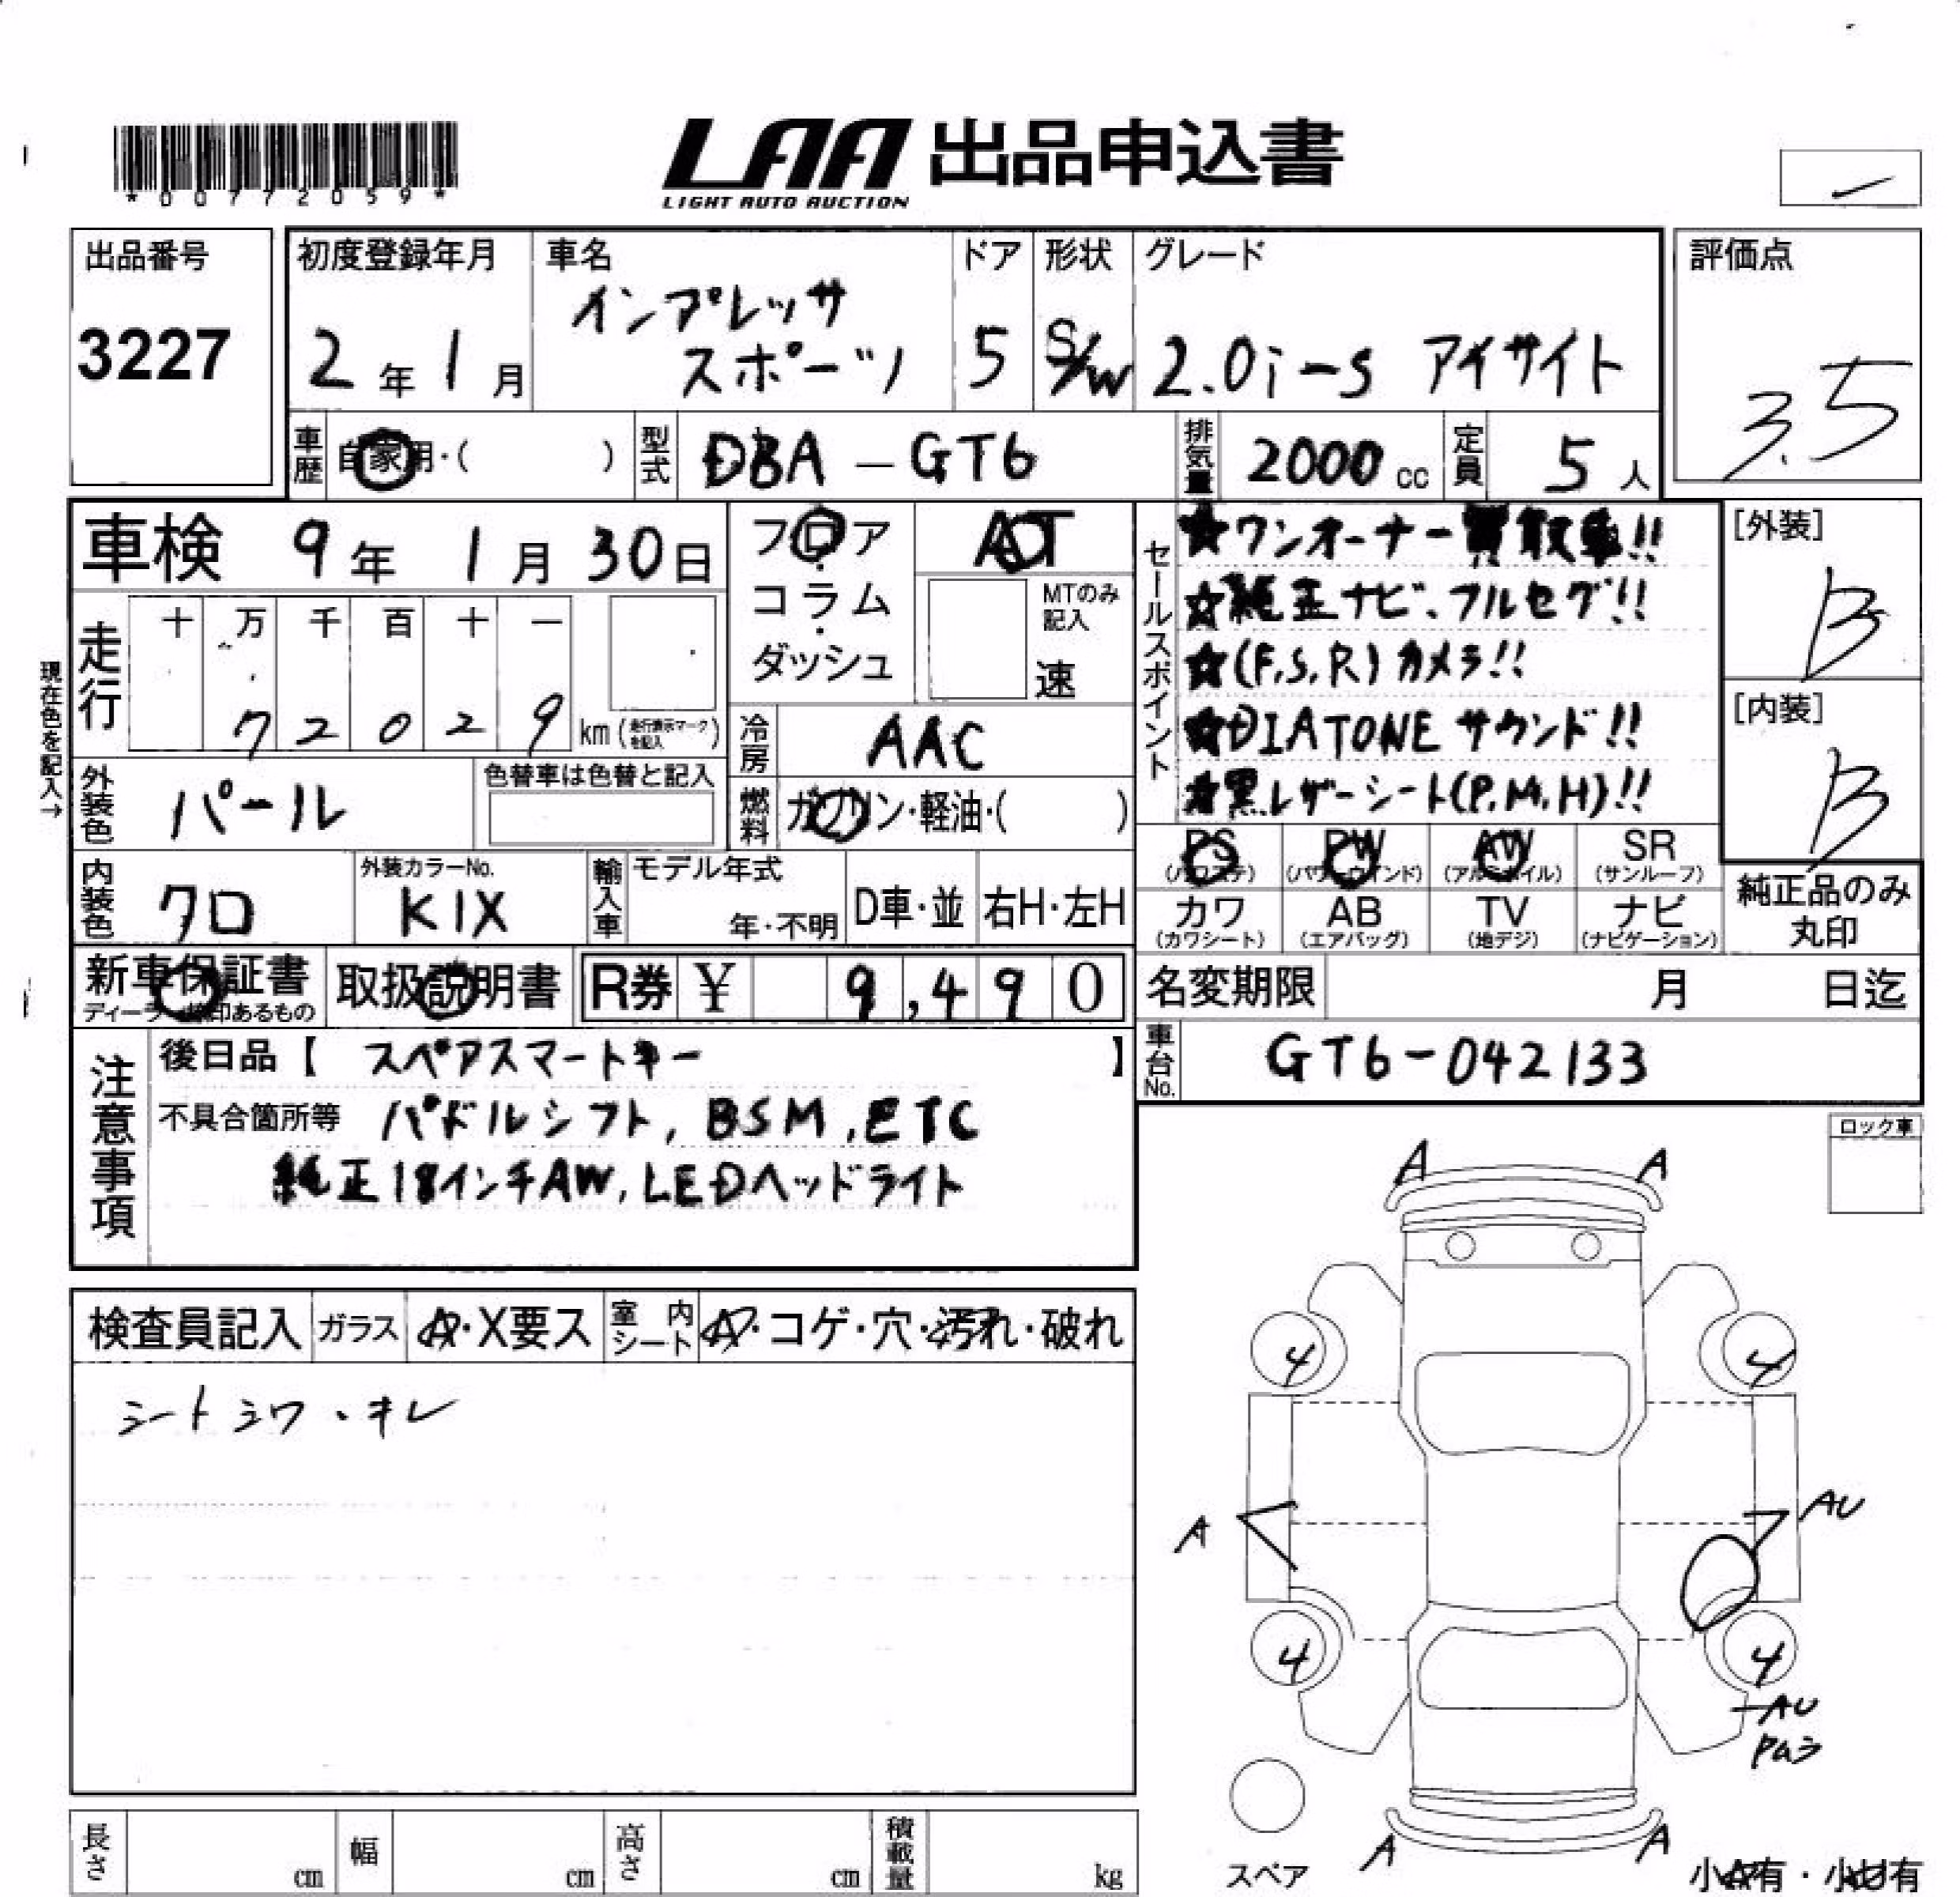 *00772059*
LAA 出品申込書
LIGHT AUTO AUCTION
出品番号
3227
初度登録年月
2年1月
車名
インプレッサ
スポーツ
ドア
5
形状
S/W
グレード
2.0i-s アイサイト
評価点
3.5
車歴
自家用・( )
型式
DBA-GT6
排気量
2000cc
定員
5人
車検 9年 1月 30日
フロア
コラム
ダッシュ
AT
MTのみ
記入
速
セールスポイント
★ワンオーナー買取車!!
☆純正ナビ、フルセグ!!
★(F,S,R)カメラ!!
★DIATONE サウンド!!
★黒レザーシート(P,M,H)!!
[外装]
B
[内装]
B
現在色を記入→
走行
十 万 千 百 十 一
7 2 0 2 9 km(走行表示マークを記入)
冷房
AAC
外装色
パール
色替車は色替と記入
燃料
ガソリン・軽油・( )
PS PW AW SR
(パワステ) (パワーウインド) (アルミホイル) (サンルーフ)
カワ AB TV ナビ
(カワシート) (エアバッグ) (地デジ) (ナビゲーション)
純正品のみ
丸印
内装色
クロ
外装カラーNo.
K1X
輸入車
モデル年式
年・不明
D車・並
右H・左H
新車保証書
取扱説明書
R券 ¥ 9,490
名変期限 月 日迄
車台No.
GT6-042133
注意事項
後日品【 スペアスマートキー 】
不具合箇所等 パドルシフト, BSM, ETC
純正18インチAW, LEDヘッドライト
ロック車
検査員記入
ガラス
A・X要ス
室内シート
A・コゲ・穴・汚れ・破れ
シートシワ・キレ
A A
4 4
A AU
4 4
AU
A A
スペア
小A有・小U有
長さ cm
幅 cm
高さ cm
積載量 kg